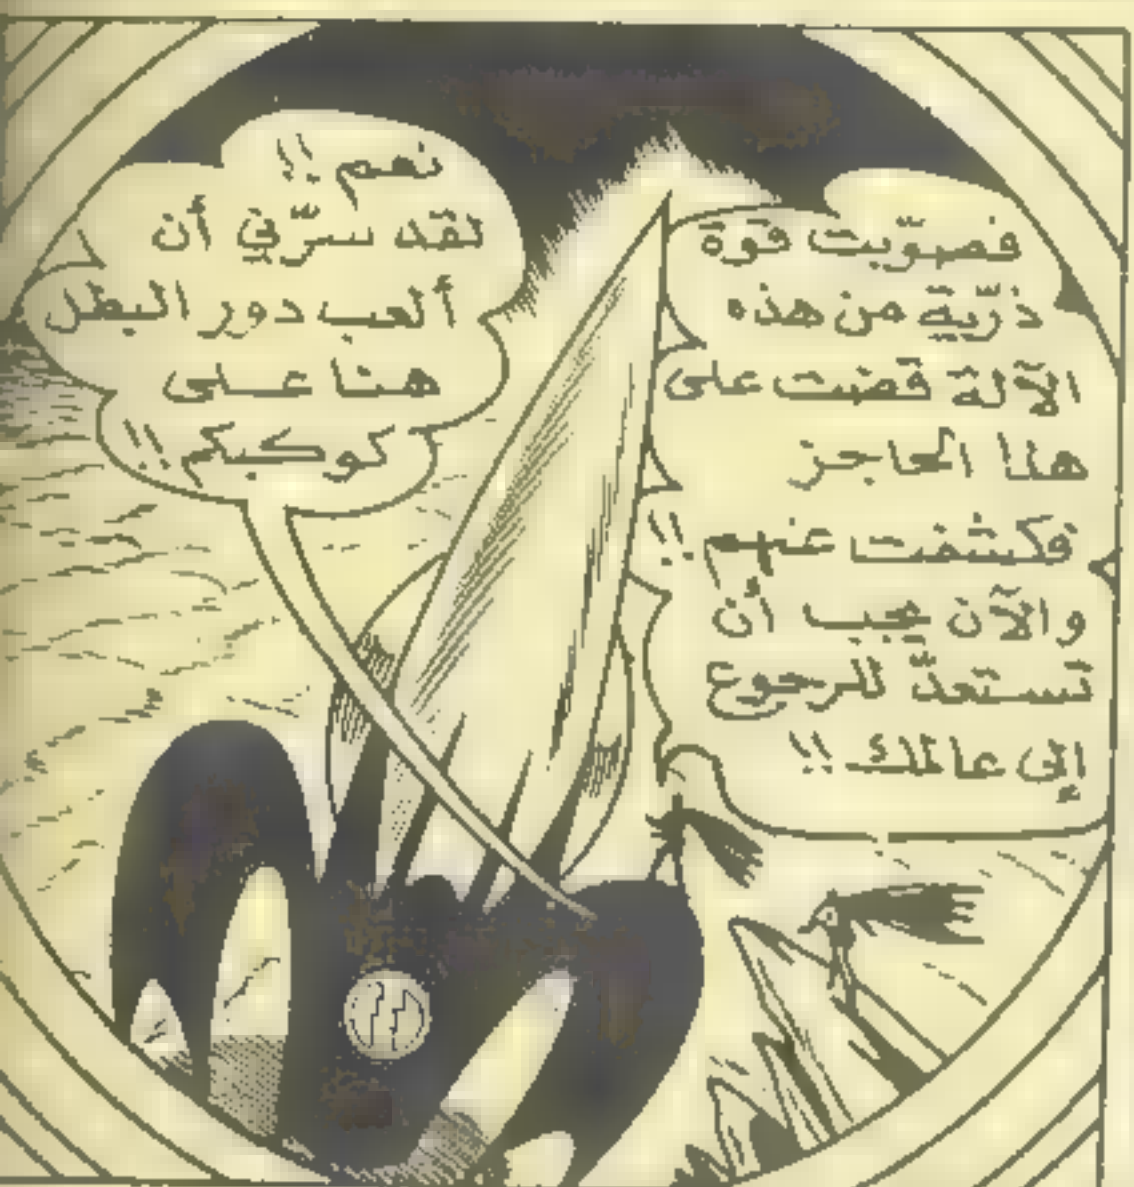 فصوّبت قوة
ذرّية من هذه
الآلة قضت على
هذا الحاجز
فكشفت عنهم !!
والآن يجب أن
تستعدّ للرجوع
إلى عالمك !!
نعم !!
لقد سرّني أن
ألعب دور البطل
هنا على
كوكبكم !!